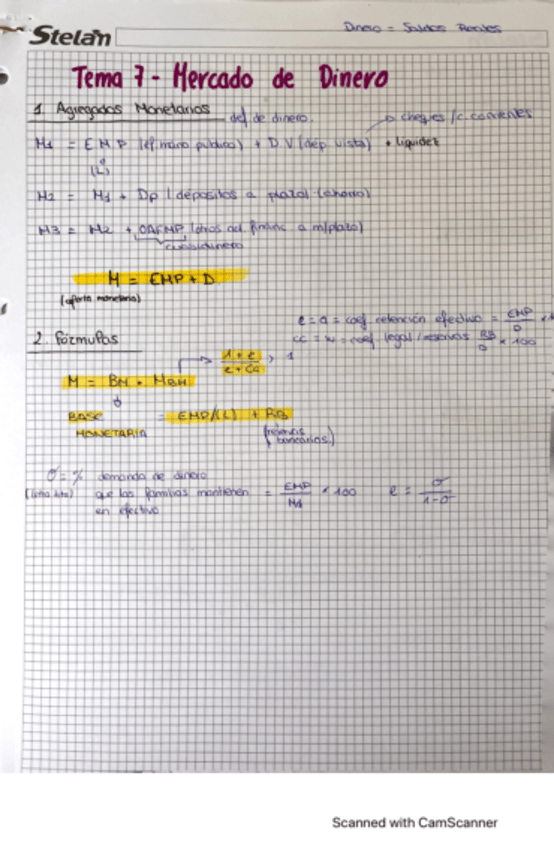 Dinero = Saldos Reales
Stelan
Tema 7 - Mercado de Dinero
1. Agregados Monetarios def de dinero. → cheques / c. corrientes
M1 = EMP (ef. mano público) + DV (dep. vista) + liquidez
(L)
M2 = M1 + Dp (depósitos a plazo) (ahorro)
M3 = M2 + OAFMP (otros act. financ. a m/plazo)
cuasidinero
M = EMP + D
(oferta monetaria)
e = a = coef retención efectivo = EMP/D
2. Fórmulas
cc = w = coef. legal / reservas RB/D x 100
1+e/e+cc > 1
M = BM · MBM
BASE MONETARIA = EMP/(L) + RB
(reservas bancarias)
σ = % demanda de dinero
que las familias mantienen = EMP/M1 x 100 e = σ/1-σ
en efectivo
Scanned with CamScanner